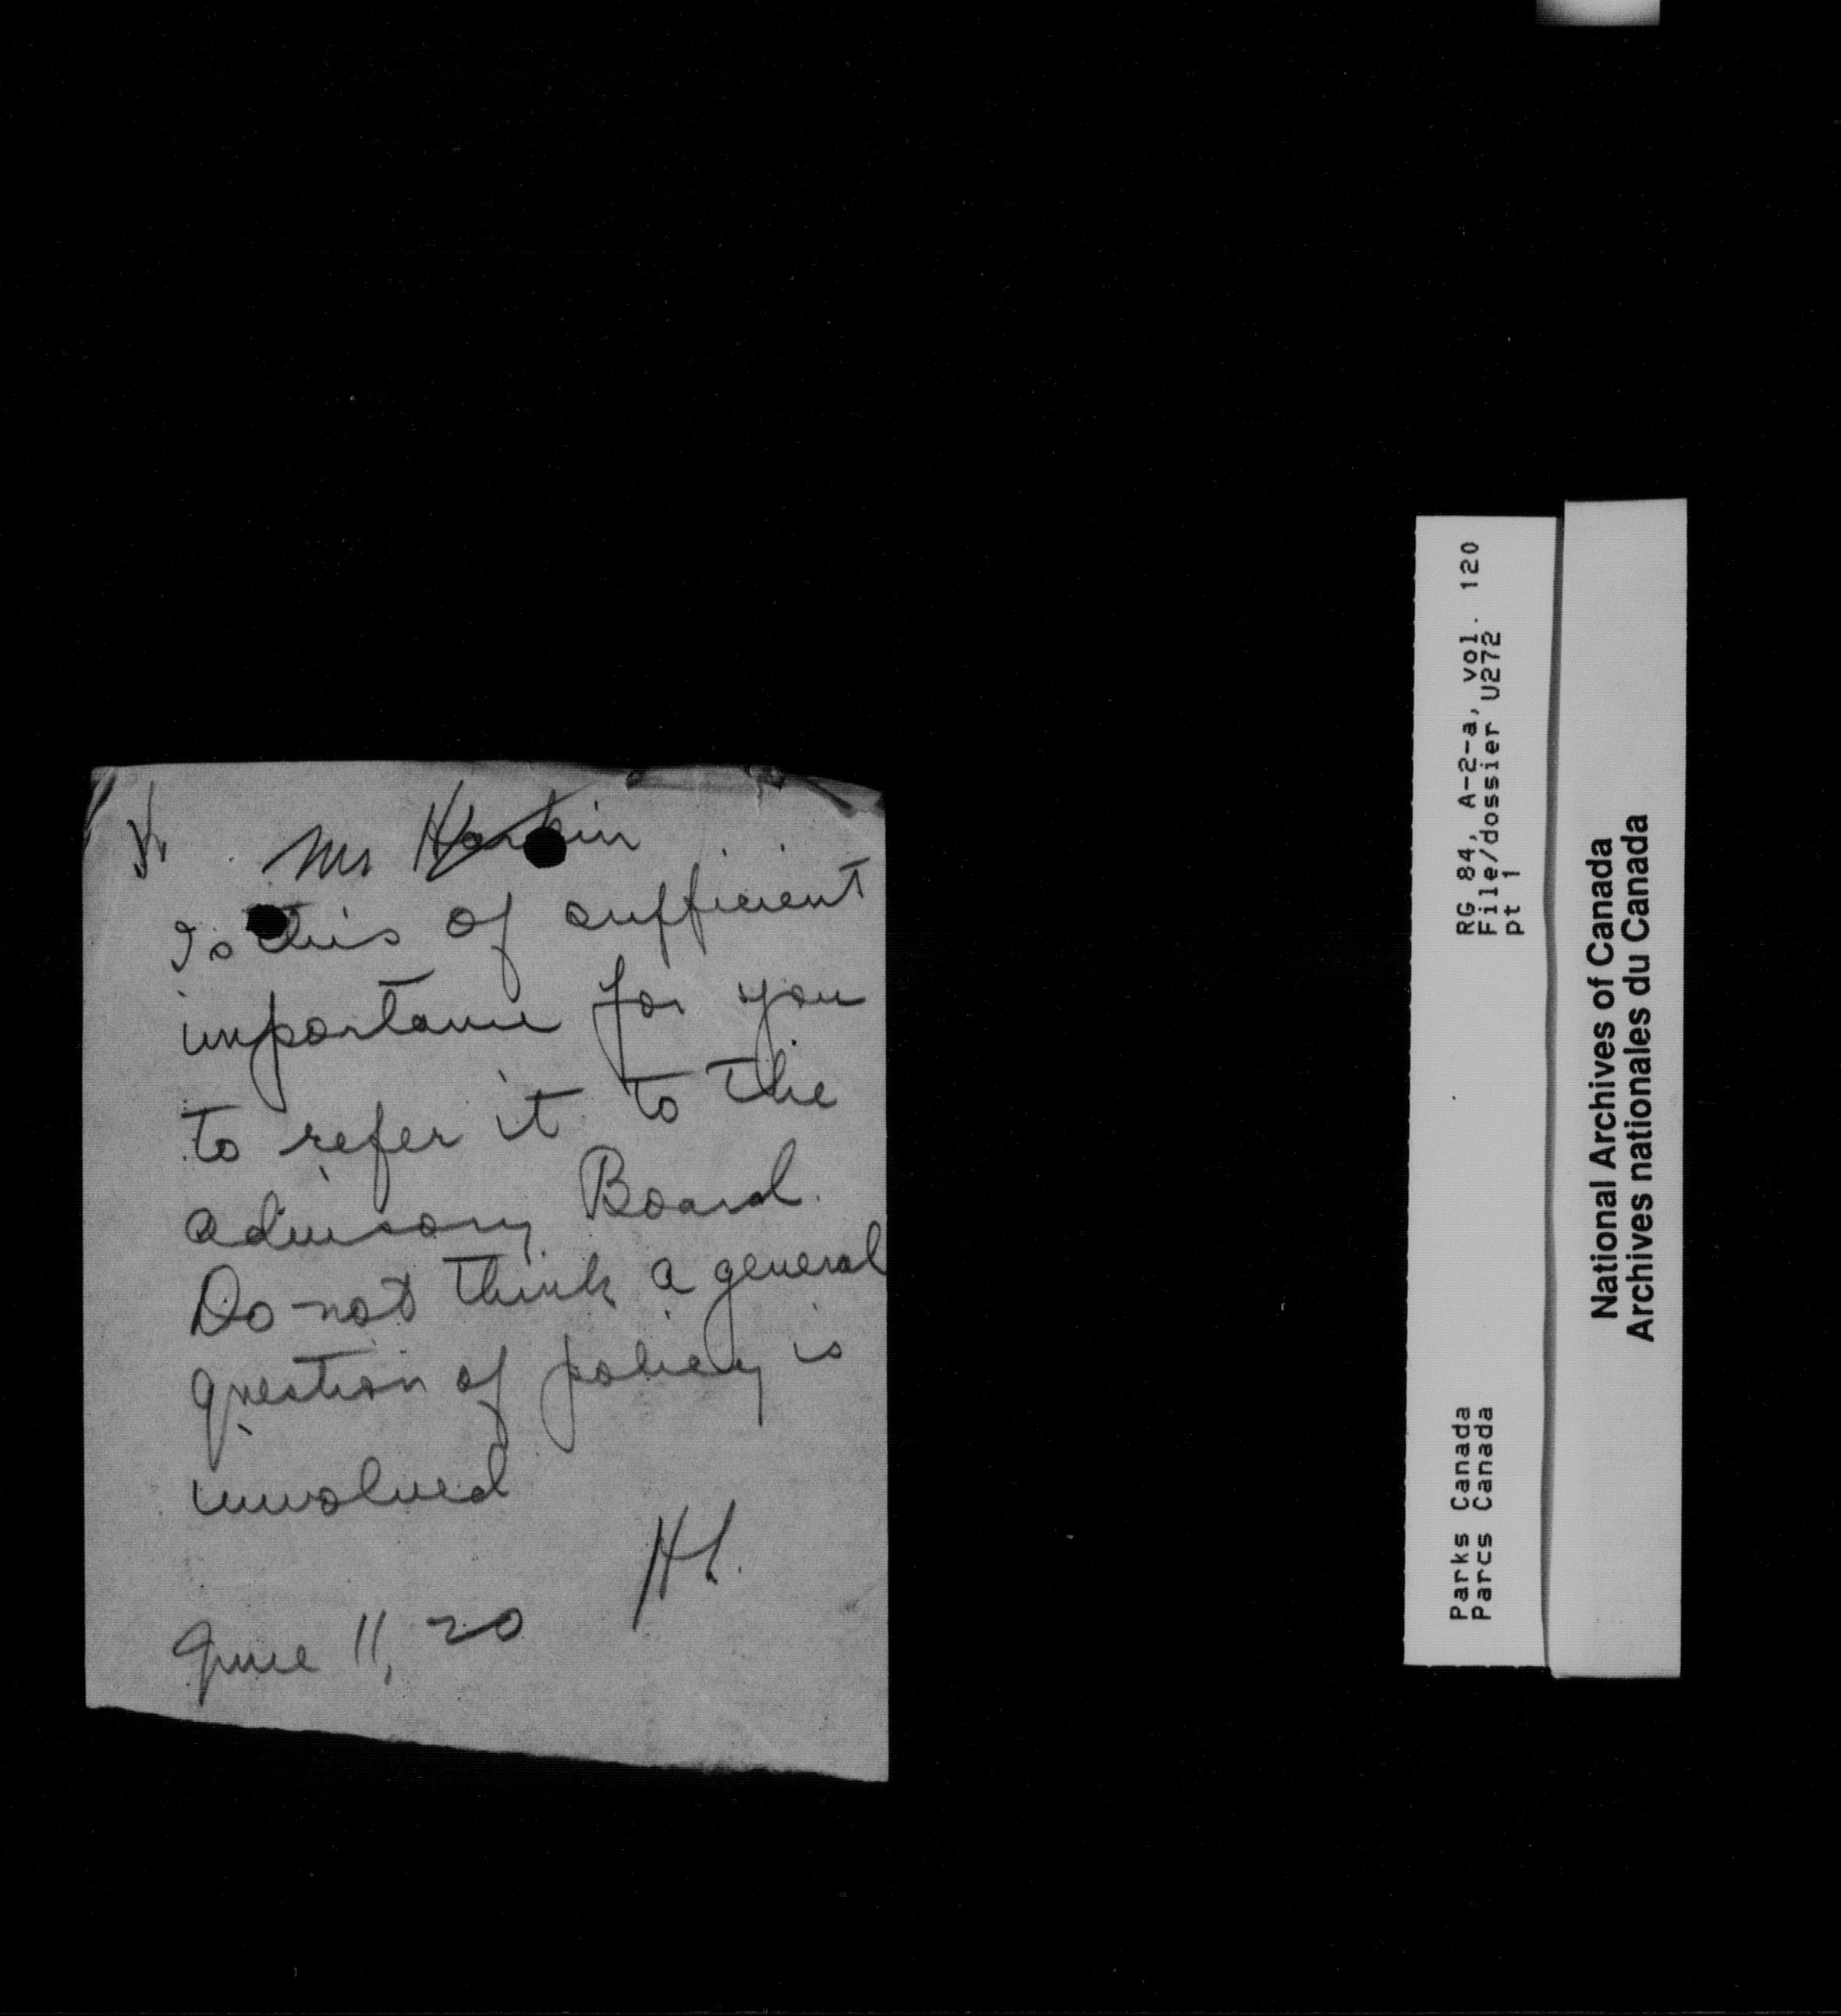 Mr Harkin
Is this of sufficient
importance for you
to refer it to the
advisory Board.
Do not think a general
question of policy is
involved
June 11, 20
RG 84, A-2-a, vol. 120
File/dossier U272
pt 1
Parks Canada
Parcs Canada
National Archives of Canada
Archives nationales du Canada